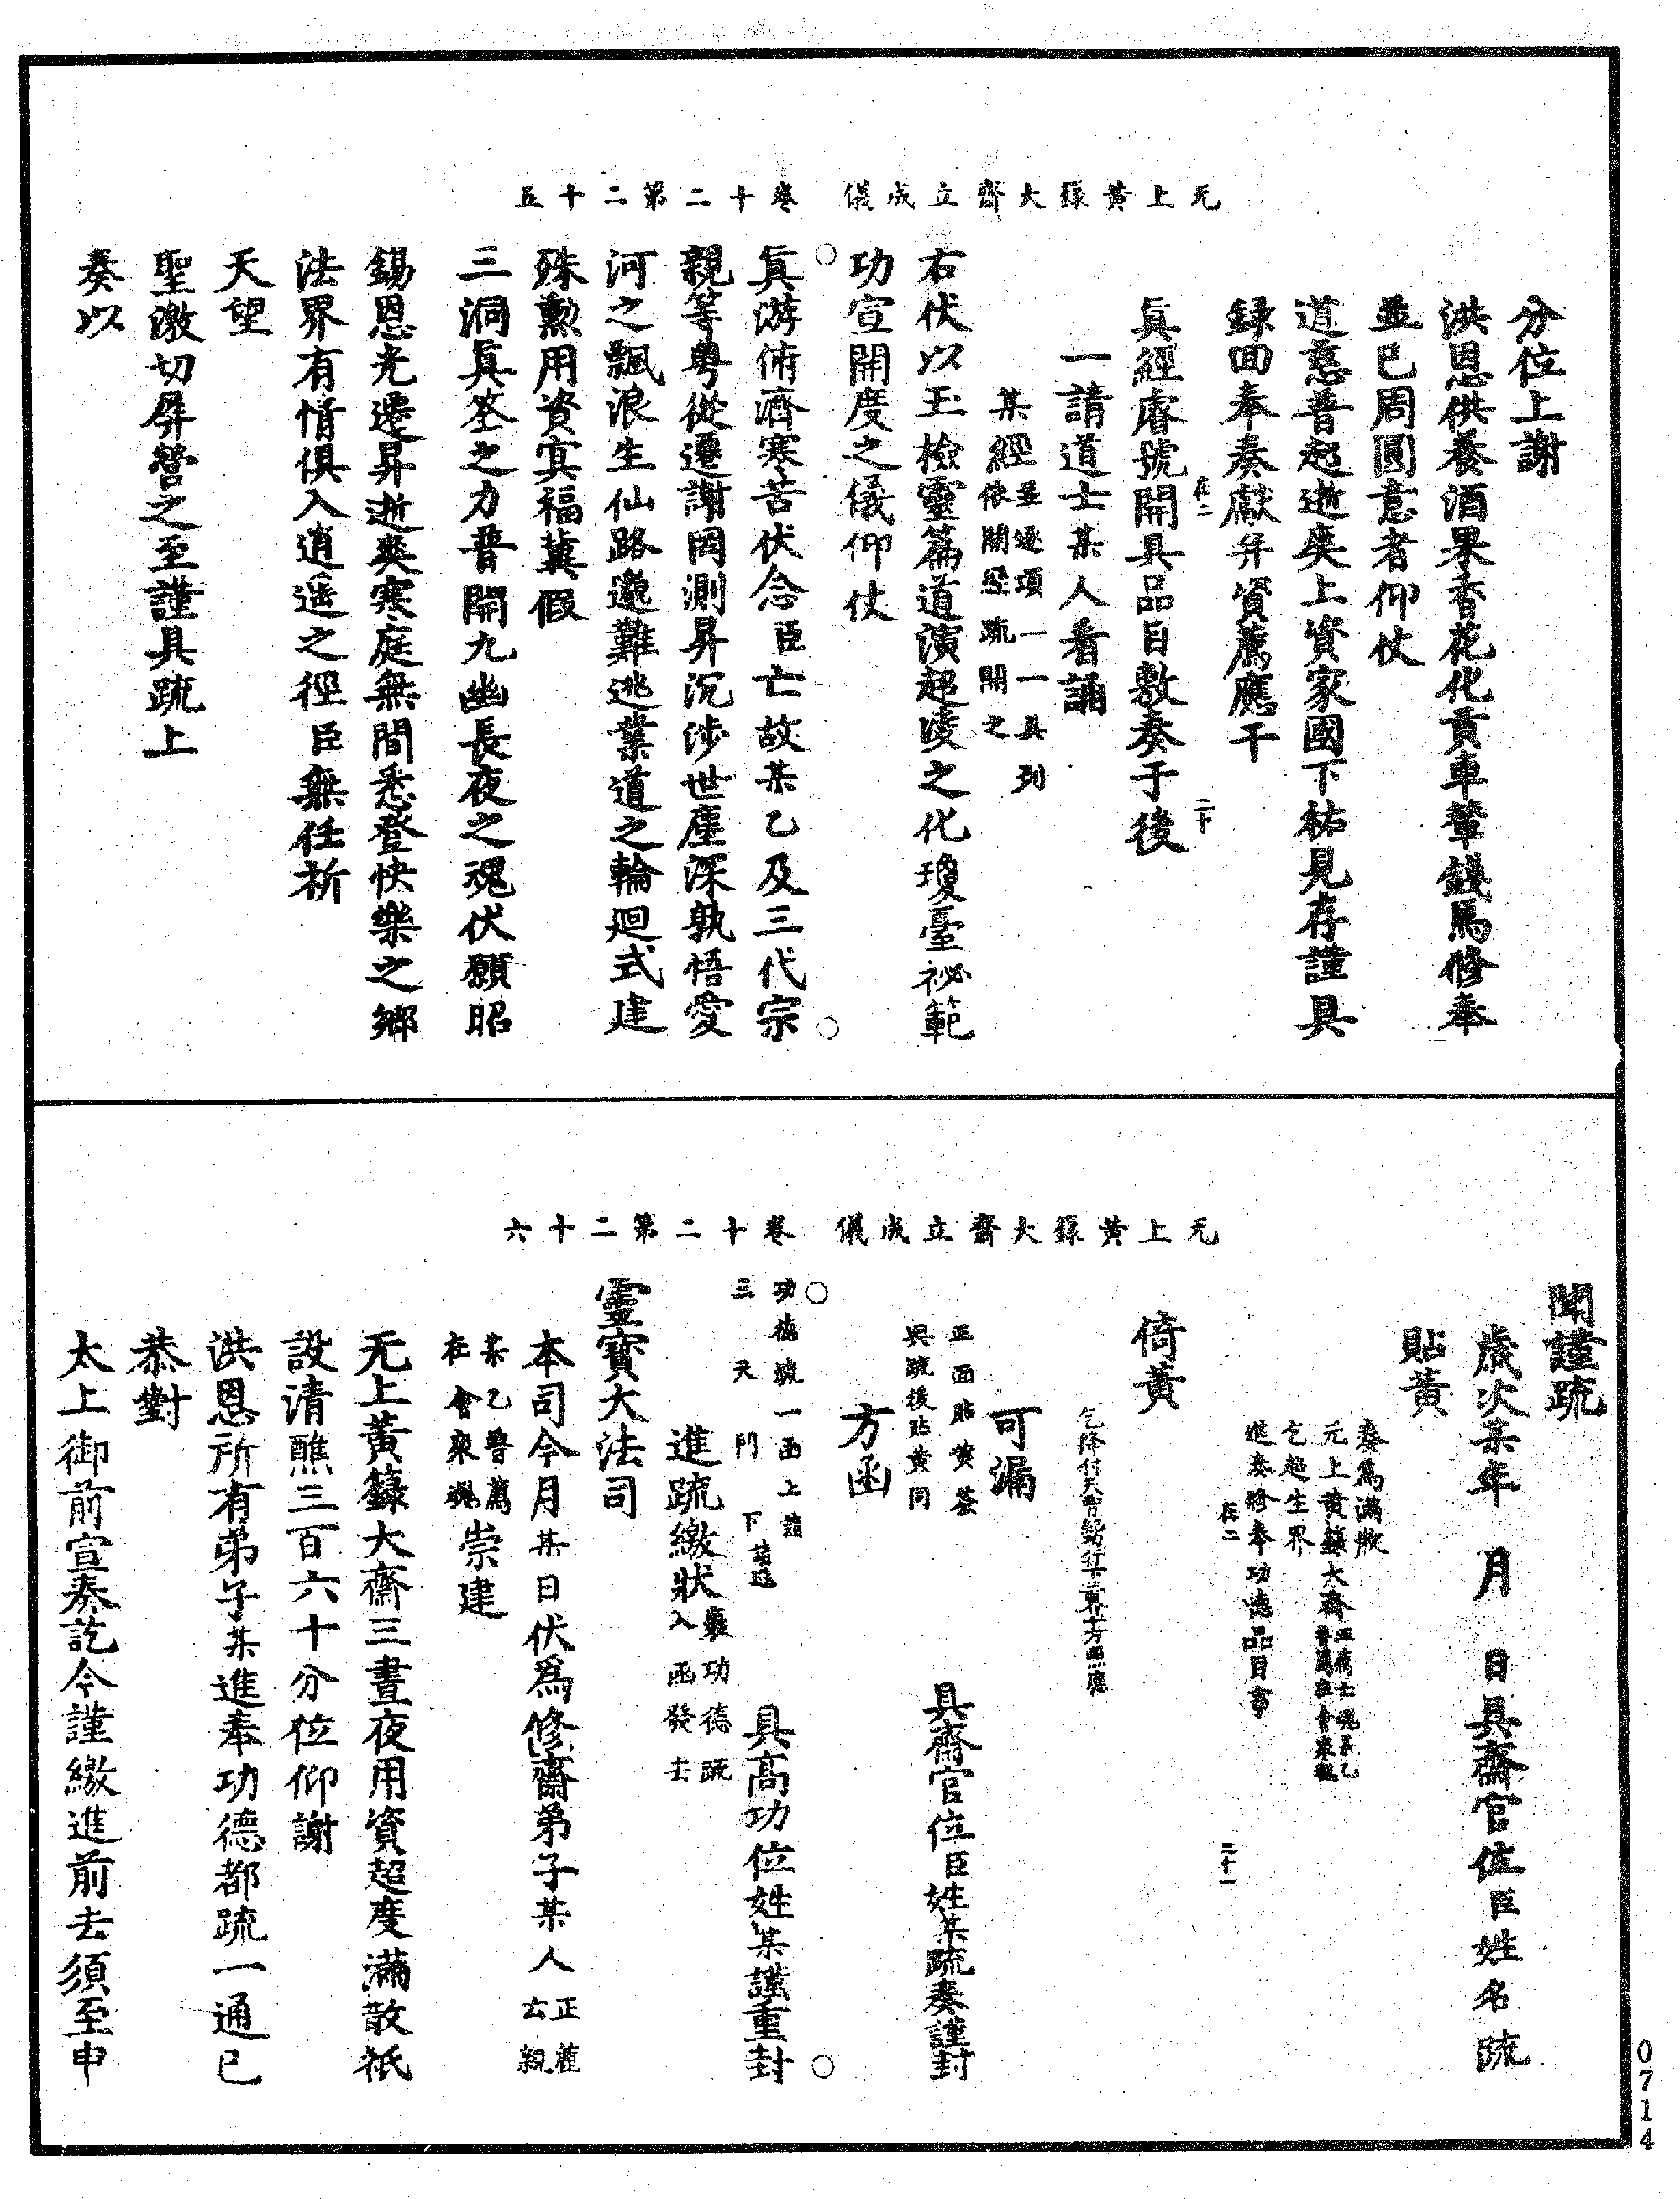 无上黃籙大齋立成儀 卷十二第二十五
分位上謝
洪恩供養酒果香花化貢車輦錢馬修奉
並已周圓意者仰仗
道慈普超逝爽上資家國下祐見存謹具
録回奉奏獻并資薦應干
在二 二十
眞經睿號開具品目敷奏于後
一請道士某人看誦
某經並逐項一一具列
依關經疏開之
右伏以玉檢靈篇道演超淩之化瓊臺祕範
功宣開度之儀仰仗
眞游俯濟寒苦伏念臣亡故某乙及三代宗
親等粤從遷謝罔測昇沉涉世塵深孰悟愛
河之飄浪生仙路邈難逃業道之輪廻式建
殊勲用資㝠福冀假
三洞眞筌之力普開九幽長夜之魂伏願昭
錫恩光遷昇逝爽寒庭無間悉登快樂之鄉
法界有情俱入逍遥之徑臣無任祈
天望
聖激切屏營之至謹具疏上
奏以
无上黃籙大齋立成儀 卷十二第二十六
聞謹疏
歲次某年 月 日具齋官位臣姓名 疏
貼黃
奏爲滿散
元上黃籙大齋正薦士魂某乙
普薦在會衆魂
乞超生界
進奏修奉功德品目事
在二 二十一
倚黃
可漏
正面貼黃簽
疏後貼黃同
具齋官位臣姓某疏奏謹封
方函
功德疏一函上詣
三天門下
具高功位姓某謹重封
進疏繳狀裹功德疏
入函發去
靈寶大法司
本司今月某日伏爲修齋弟子某人正薦
去親
某乙普薦
在會衆魂崇建
无上黃籙大齋三晝夜用資超度滿散祇
設清醮三百六十分位仰謝
洪恩所有弟子某進奉功德都疏一通已
恭對
太上御前宣奏訖今謹繳進前去須至申
0714